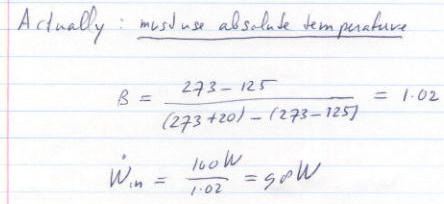 Actually : must use absolute temperature
B = 273 - 125 / (273 + 20) - (273 - 125) = 1.02
Ẇin = 100 W / 1.02 = 98 W